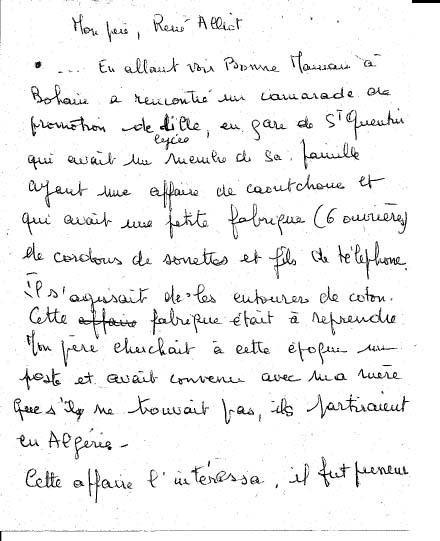 Mon père, René Alliot
• .... En allant voir Bonne Maman à
Bohain a rencontré un camarade de
promotion de Lille, en gare de St Quentin
lycée
qui avait un membre de sa famille
ayant une affaire de caoutchouc et
qui avait une petite fabrique (6 ouvrières)
de cordons de sonettes et fils de téléphone.
Il s'agissait de les entourer de coton.
Cette affaire fabrique était à reprendre
Mon père cherchait à cette époque un
poste et avait convenu avec ma mère
que s'il ne trouvait pas, ils partiraient
en Algérie -
Cette affaire l'intéressa, il fut preneur